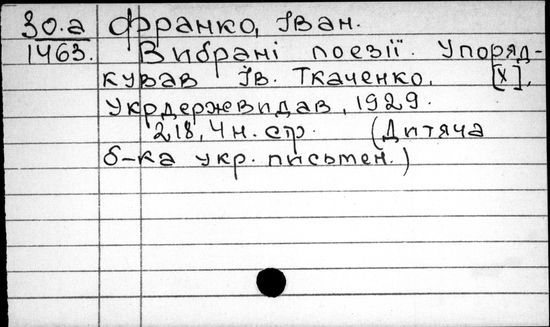 30.а Франко, Іван.
1463. Вибрані поезії. Упоряд-
кував Ів. Ткаченко. [Х],
Укрдержвидав, 1929.
218, 4 н. стр. (Дитяча
б-ка укр. письмен.)